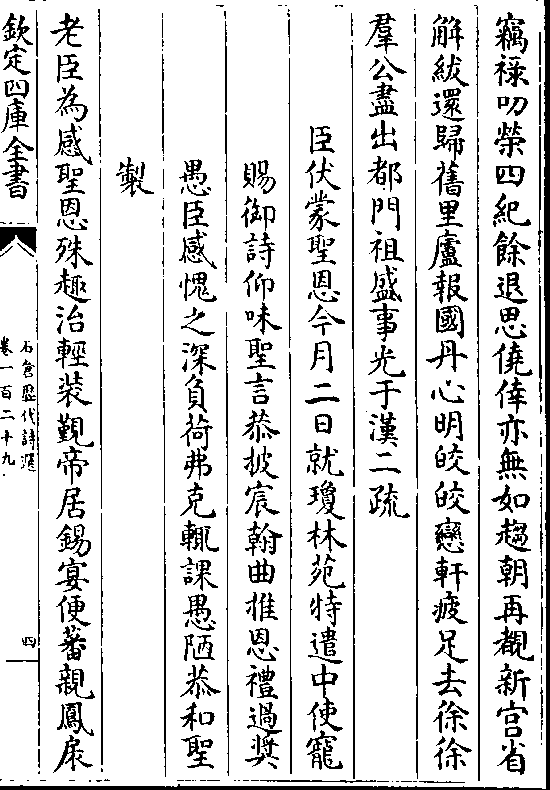 竊祿叨榮四紀餘退思僥倖亦無如趨朝再覩新宫省
解紱還歸舊里廬報國丹心明皎皎戀軒疲足去徐徐
羣公盡出都門祖盛事光于漢二疏
臣伏蒙聖恩今月二日就瓊林苑特遣中使寵
賜御詩仰味聖言恭披宸翰曲推恩禮過奬
愚臣感愧之深負荷弗克輒課愚陋恭和聖
製
老臣為感聖恩殊趣治輕裝覲帝居錫宴便蕃親鳳扆
欽定四庫全書
石倉歴代詩選
卷一百二十九
四